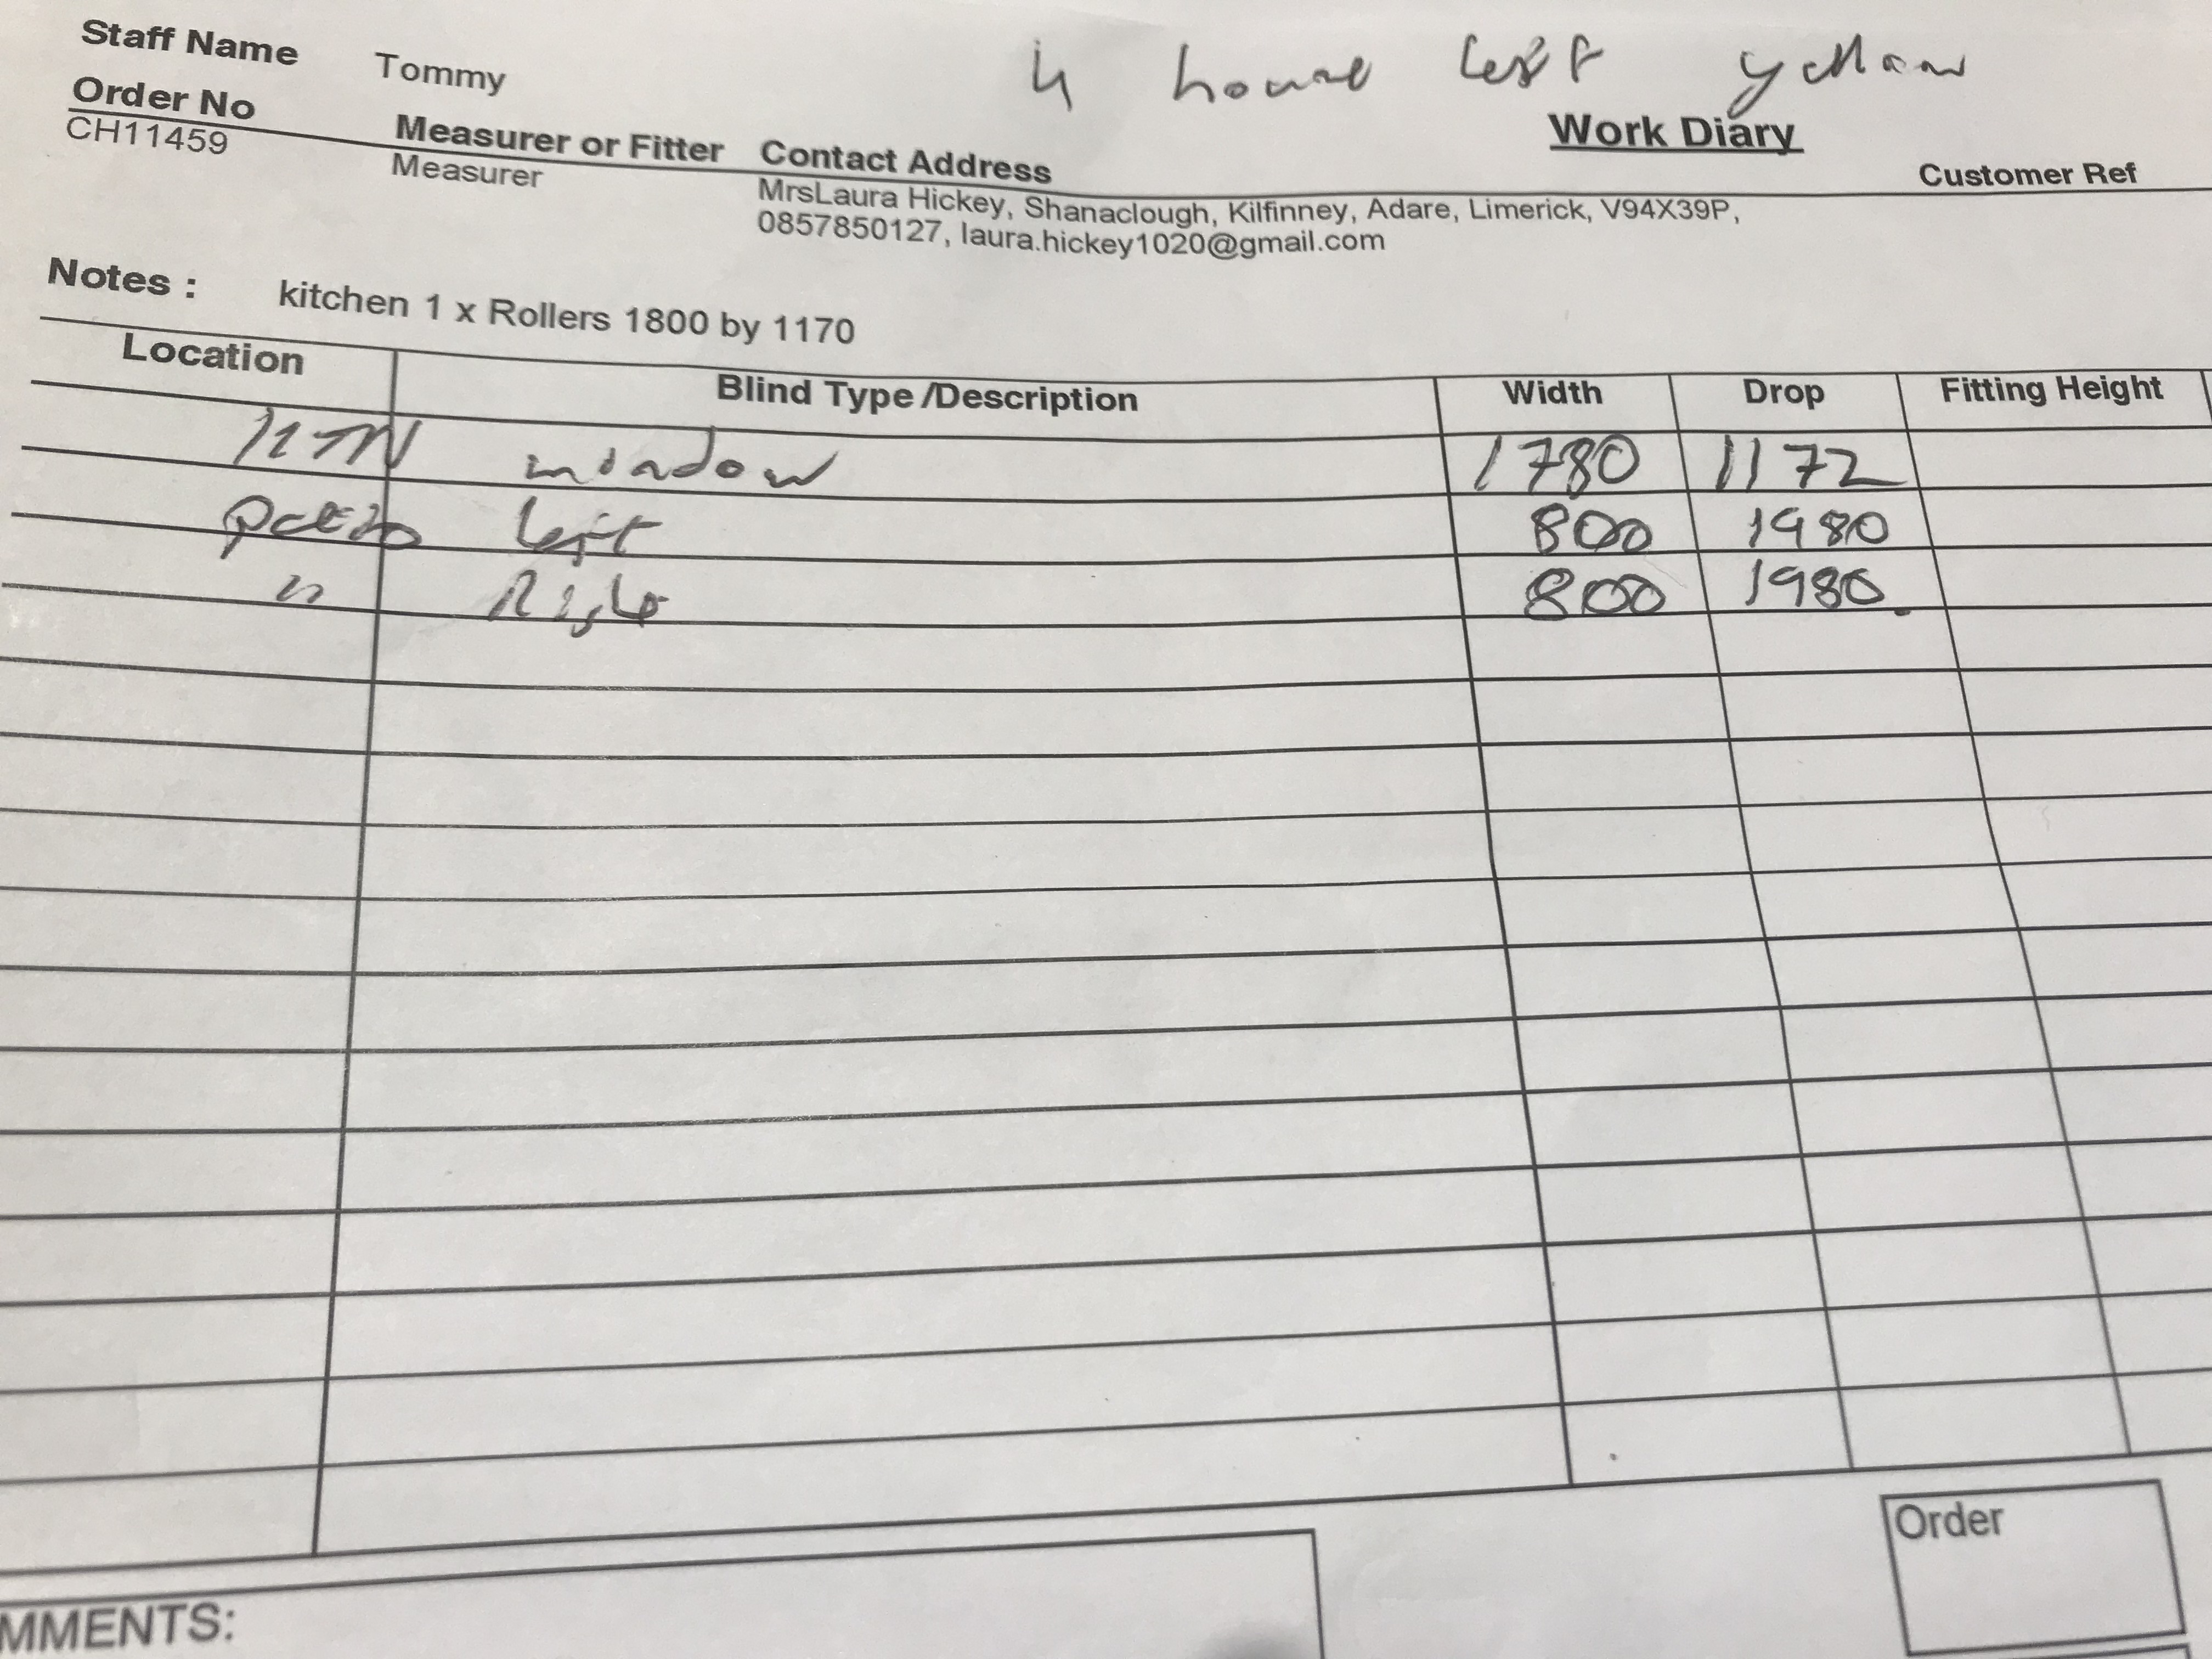 4 house left yellow
Staff Name Tommy
Work Diary
Order No Measurer or Fitter Contact Address Customer Ref
CH11459 Measurer MrsLaura Hickey, Shanaclough, Kilfinney, Adare, Limerick, V94X39P,
0857850127, laura.hickey1020@gmail.com
Notes : kitchen 1 x Rollers 1800 by 1170
Location Blind Type /Description Width Drop Fitting Height
window 1780 1172
left 800 1980
" Right 800 1980
Order
MMENTS: